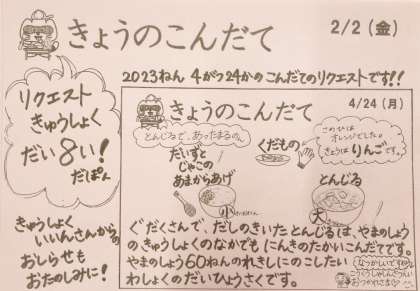 きょうのこんだて
2/2(金)
2023ねん 4がつ24かの こんだてのリクエストです!!
リクエスト
きゅうしょく
だい8い!
だぽん
きゅうしょく
いいんさんからの
おしらせも
おたのしみに!
きょうのこんだて
4/24(月)
とんじるで、あったまるの
だいずと
じゃこの
あまからあげ
くだもの
このひは
オレンジでした。
きょうはりんごです。
とんじる
小
大
ぐだくさんで、だしのきいたとんじるは、やまのしょう
のきゅうしょくのなかでも にんきのたかいこんだてです。
やまのしょう60ねんのれきしにのこしたい
わしょくのだいひょうさくです。
なつかしいですね